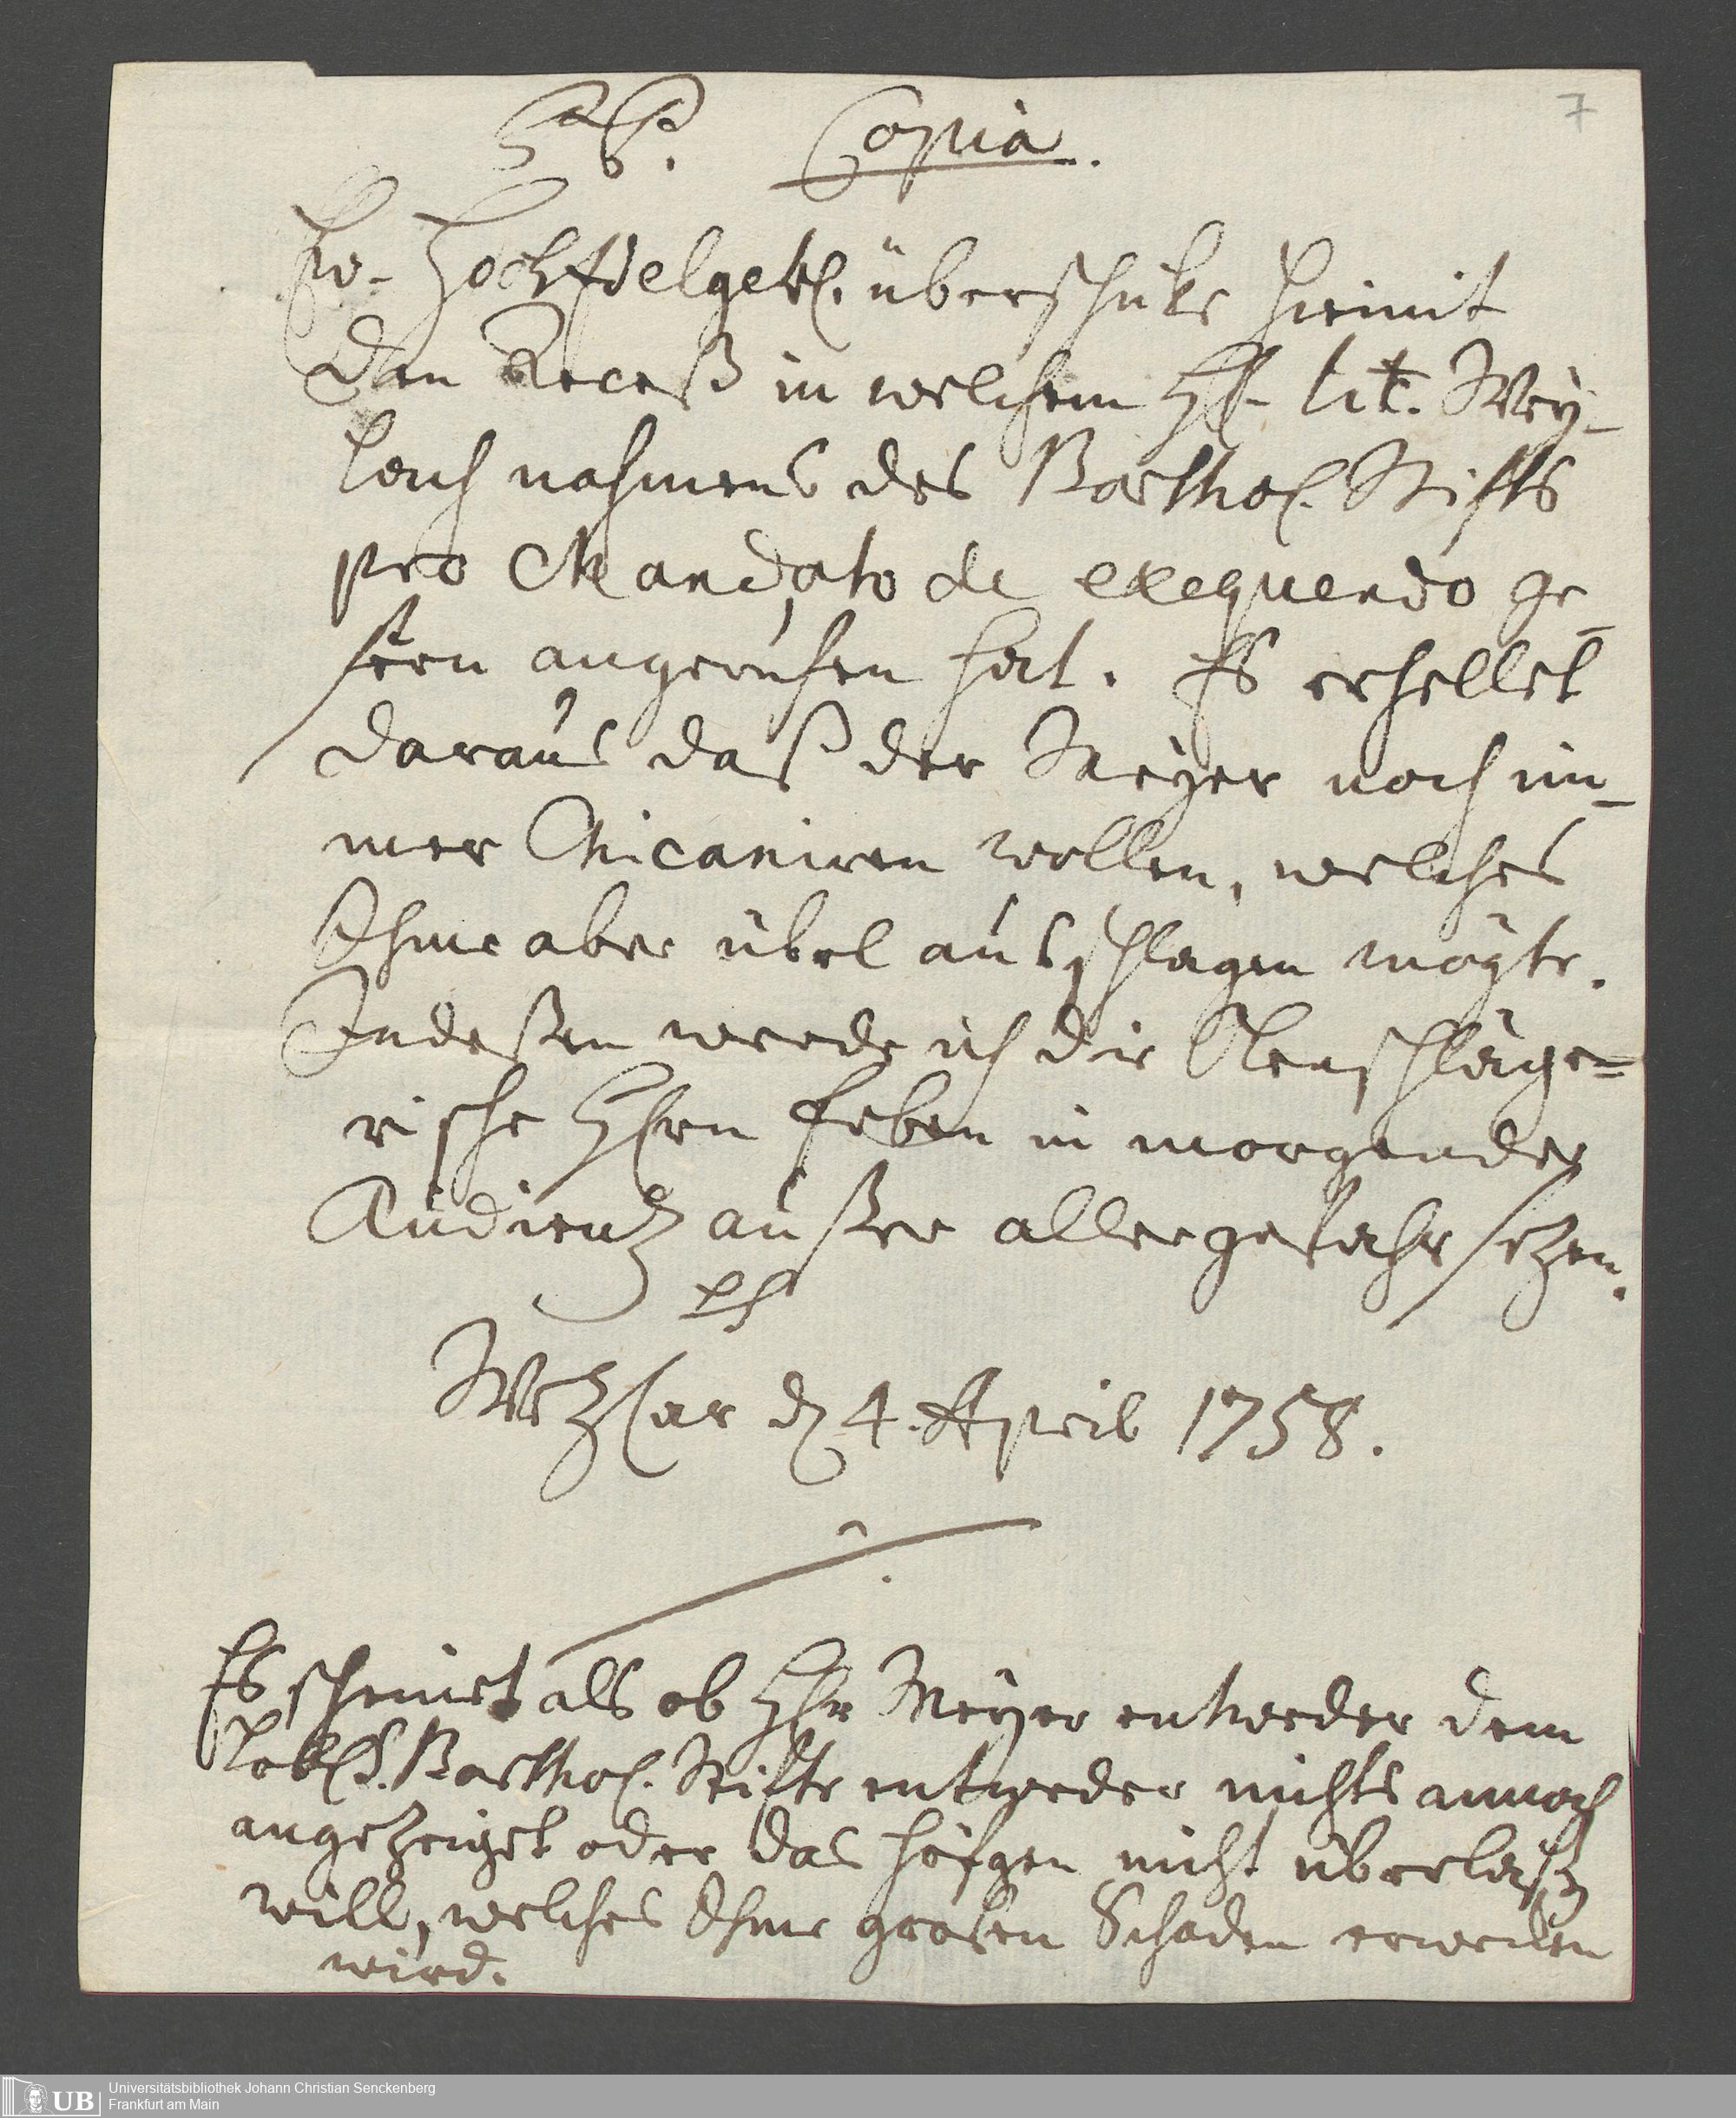 7
P. P. Copia.
Ew. HochEdelgeb. überschicke hiemit
den Recess in welchem H. Lit. Wey-
lach nahmens des Barthol. Stifts
pro Mandato de exequendo ge-
stern angerufen hat. Es erhellet
daraus daß der Meyer noch im-
mer Chicaniren wollen, welches
Ihme aber übel ausschlagen mögte.
Indeßen werde ich die Olenschläge-
rische Hhrn Erben in morgender
Audienz außer aller gefahr sezen.
Wezlar d. 4. April 1758.
Es scheinet als ob Hhr Meyer entweder dem
Löbl. S. Barthol. Stifte entweder nichts annoch
angezeiget oder das höfgen nicht überlaßen
will, welches Ihme großen Schaden erwecken
wird.
Universitätsbibliothek Johann Christian Senckenberg
UB Frankfurt am Main